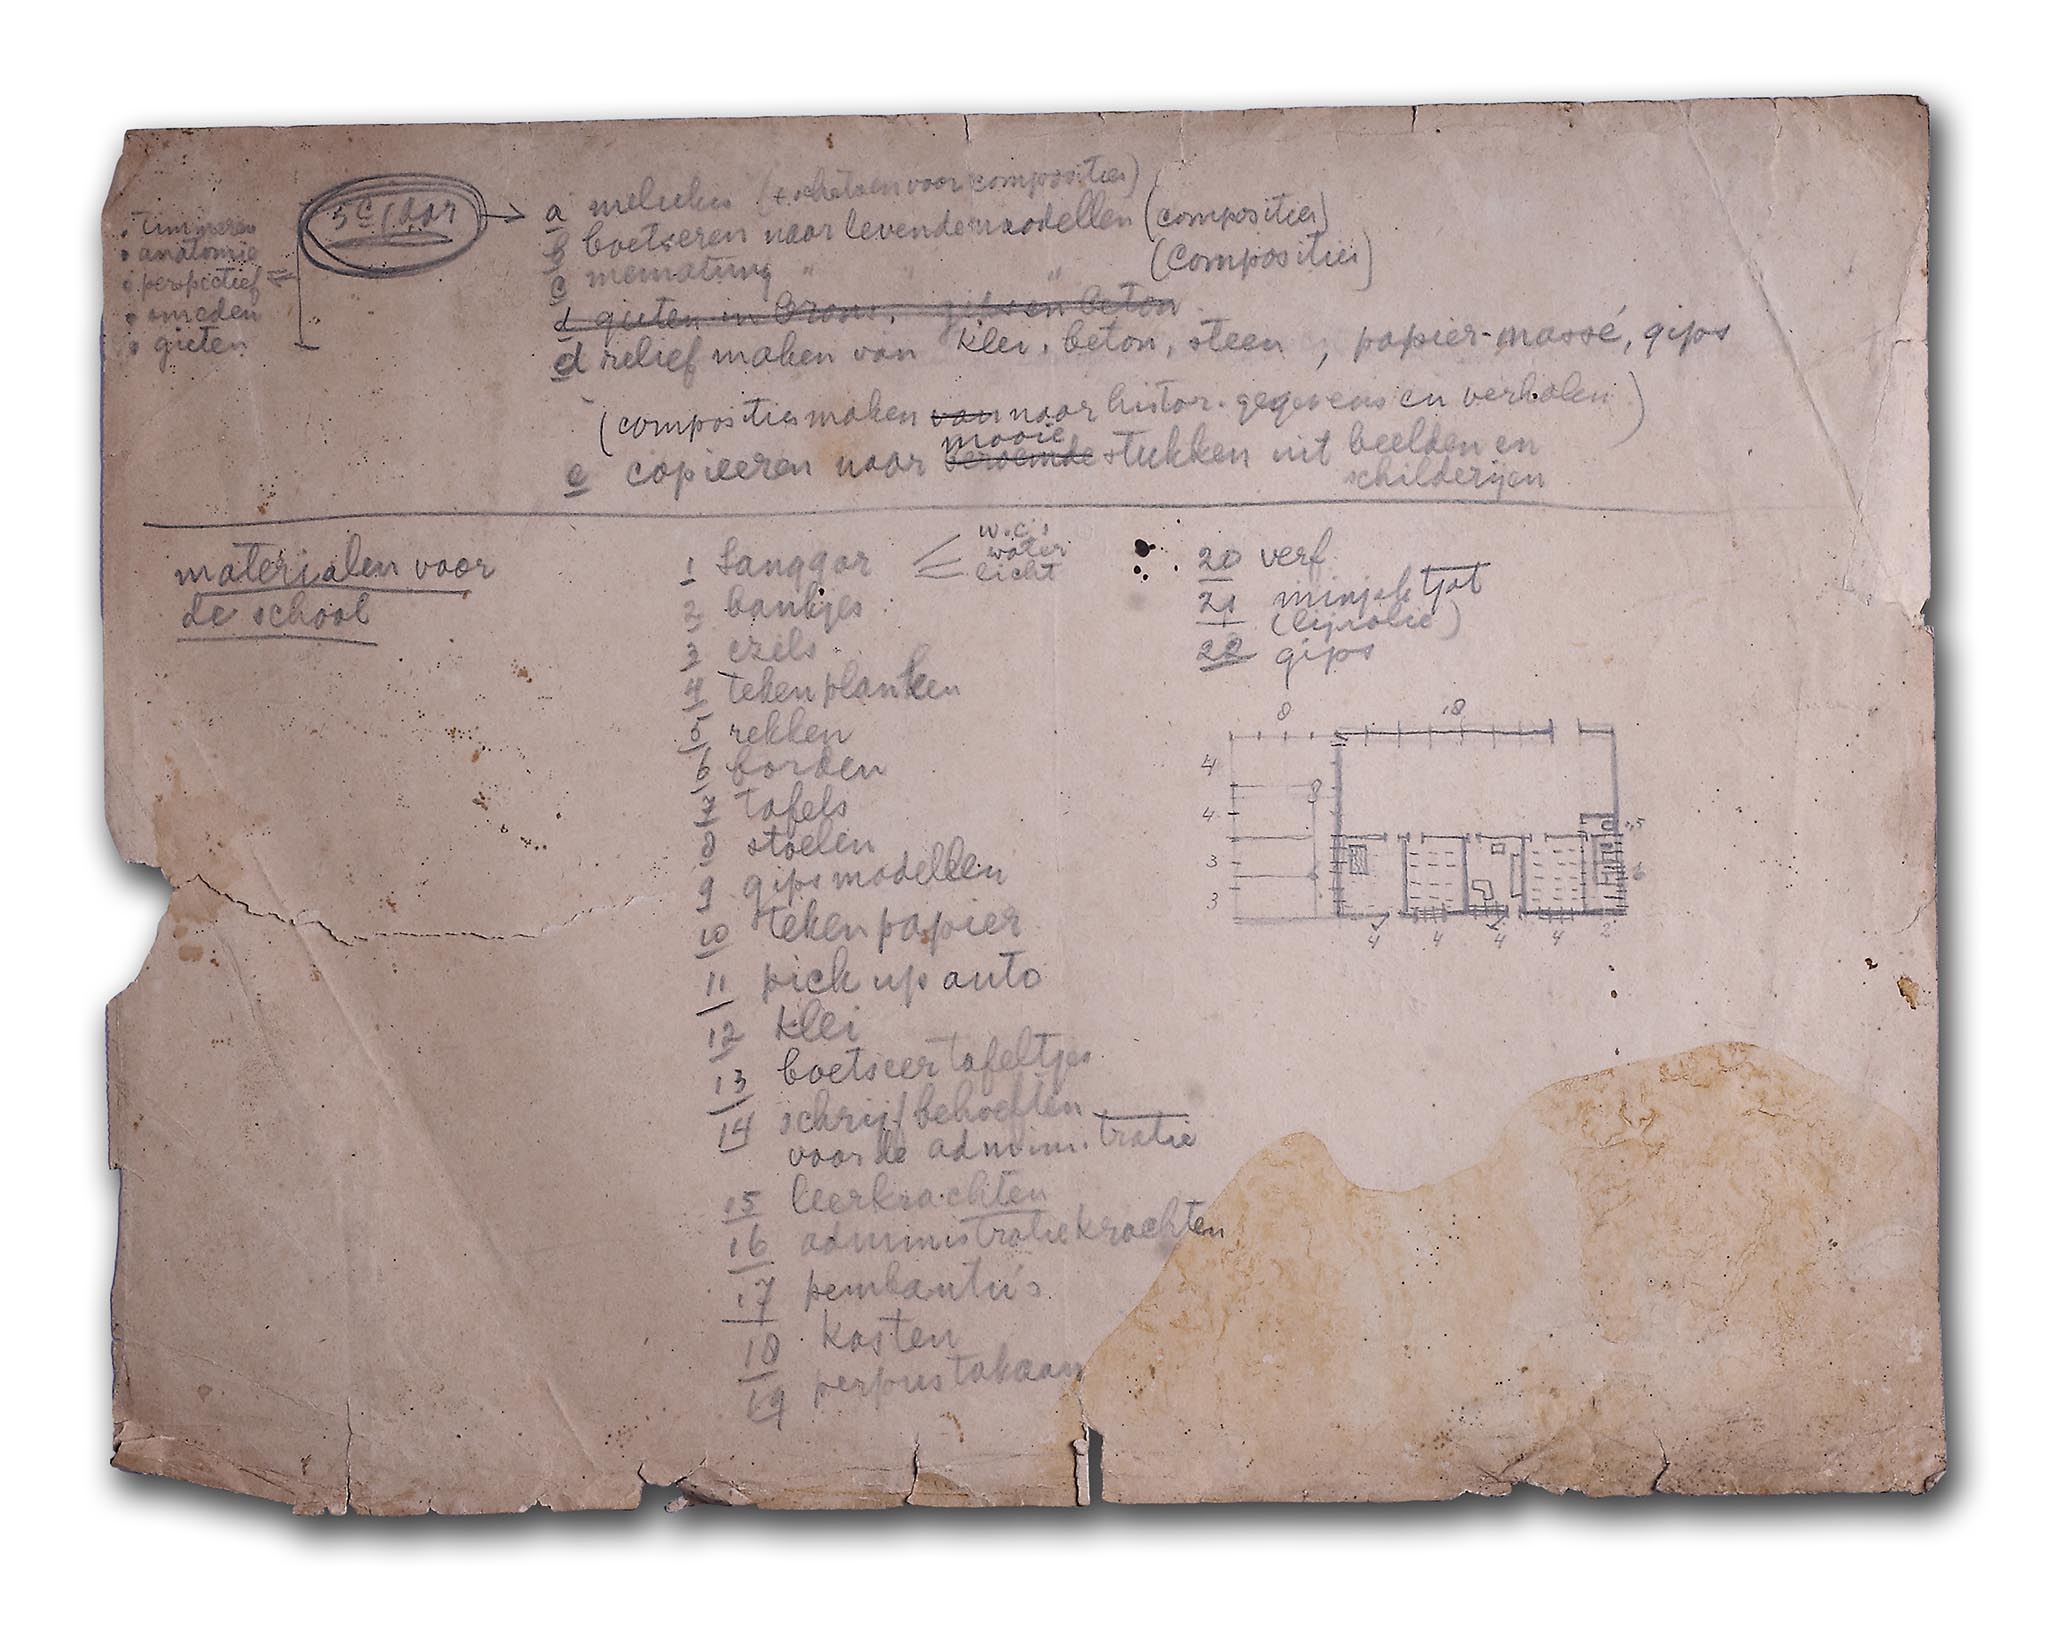 • timmeren
• anatomie
• perspectief =
• smeden
• gieten
5e jaar →
a melukis (+ schetsen voor composities)
b boetseren naar levende modellen (composities)
c mematung " " " (composities)
d gieten in brons, gips en beton
d relief maken van klei, beton, steen, papier-massé, gips
(composities maken van naar histor. gegevens en verhalen)
mooie
e copieeren naar beroemde stukken uit beelden en
schilderijen
materialen voor
de school
1 Sanggar
w.c.s
water
licht
2 bankjes
3 ezels
4 tekenplanken
5 rekken
6 borden
7 tafels
8 stoelen
9 gipsmodellen
10 tekenpapier
11 pick up auto
12 klei
13 boetseertafeltjes
14 schrijfbehoeften
voor de administratie
15 leerkrachten
16 administratiekrachten
17 pembantu's
18 kasten
19 perpustakaan
20 verf
21 minjak tjat
(lijnolie)
22 gips
8 18
4
8
4
1,5
3
6
3
4 4 4 4 2